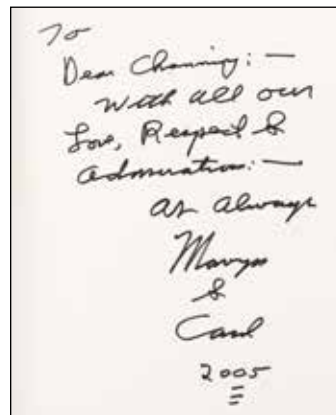 To
Dear Channing: —
With all our
Love, Respect &
Admiration: —
As Always
Marge
&
Carl
2005